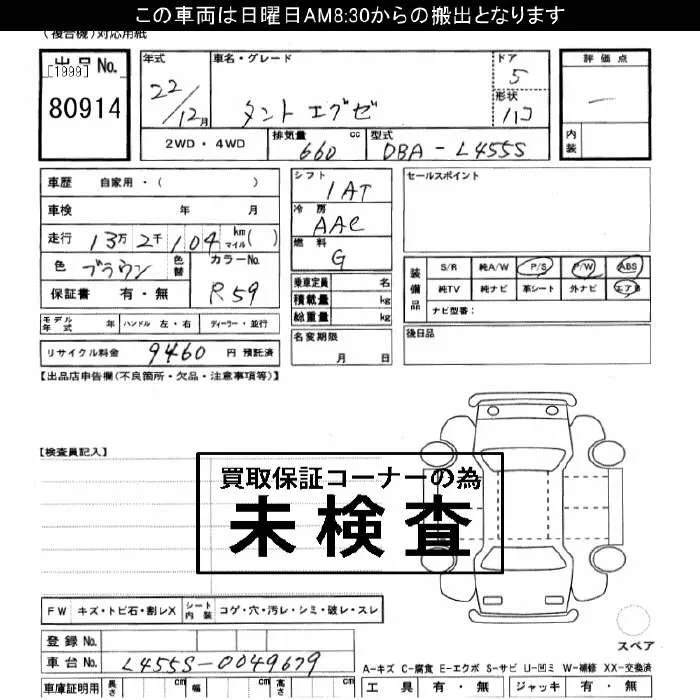 この車両は日曜日AM8:30からの搬出となります
(複合機)対応用紙
出品No.
[1999]
80914
年式
22/12月
車名・グレード
タントエグゼ
ドア
5
形状
ハコ
評価点
—
内装
2WD・4WD
排気量 660 cc
型式 DBA-L455S
車歴 自家用・( )
車検 年 月
走行 13万2千104 km マイル( )
色 ブラウン 色替
カラーNo. R59
保証書 有・無
シフト 1AT
冷房 AAC
燃料 G
乗車定員 名
積載量 kg
総重量 kg
名変期限 月 日
セールスポイント
装備品
S/R 純A/W P/S P/W ABS
純TV 純ナビ 革シート 外ナビ エアB
ナビ型番:
後日品
モデル年式 年 ハンドル 左・右 ディーラー・並行
リサイクル料金 9460 円 預託済
【出品店申告欄(不良箇所・欠品・注意事項等)】
【検査員記入】
買取保証コーナーの為
未検査
FW キズ・トビ石・割レX シート内装 コゲ・穴・汚レ・シミ・破レ・スレ
スペア
登録No.
車台No. L455S-0049679
A-キズ C-腐食 E-エクボ S-サビ U-凹ミ W-補修 XX-交換済
車庫証明用 長さ cm 幅 cm 高さ cm
工具 有・無 ジャッキ 有・無